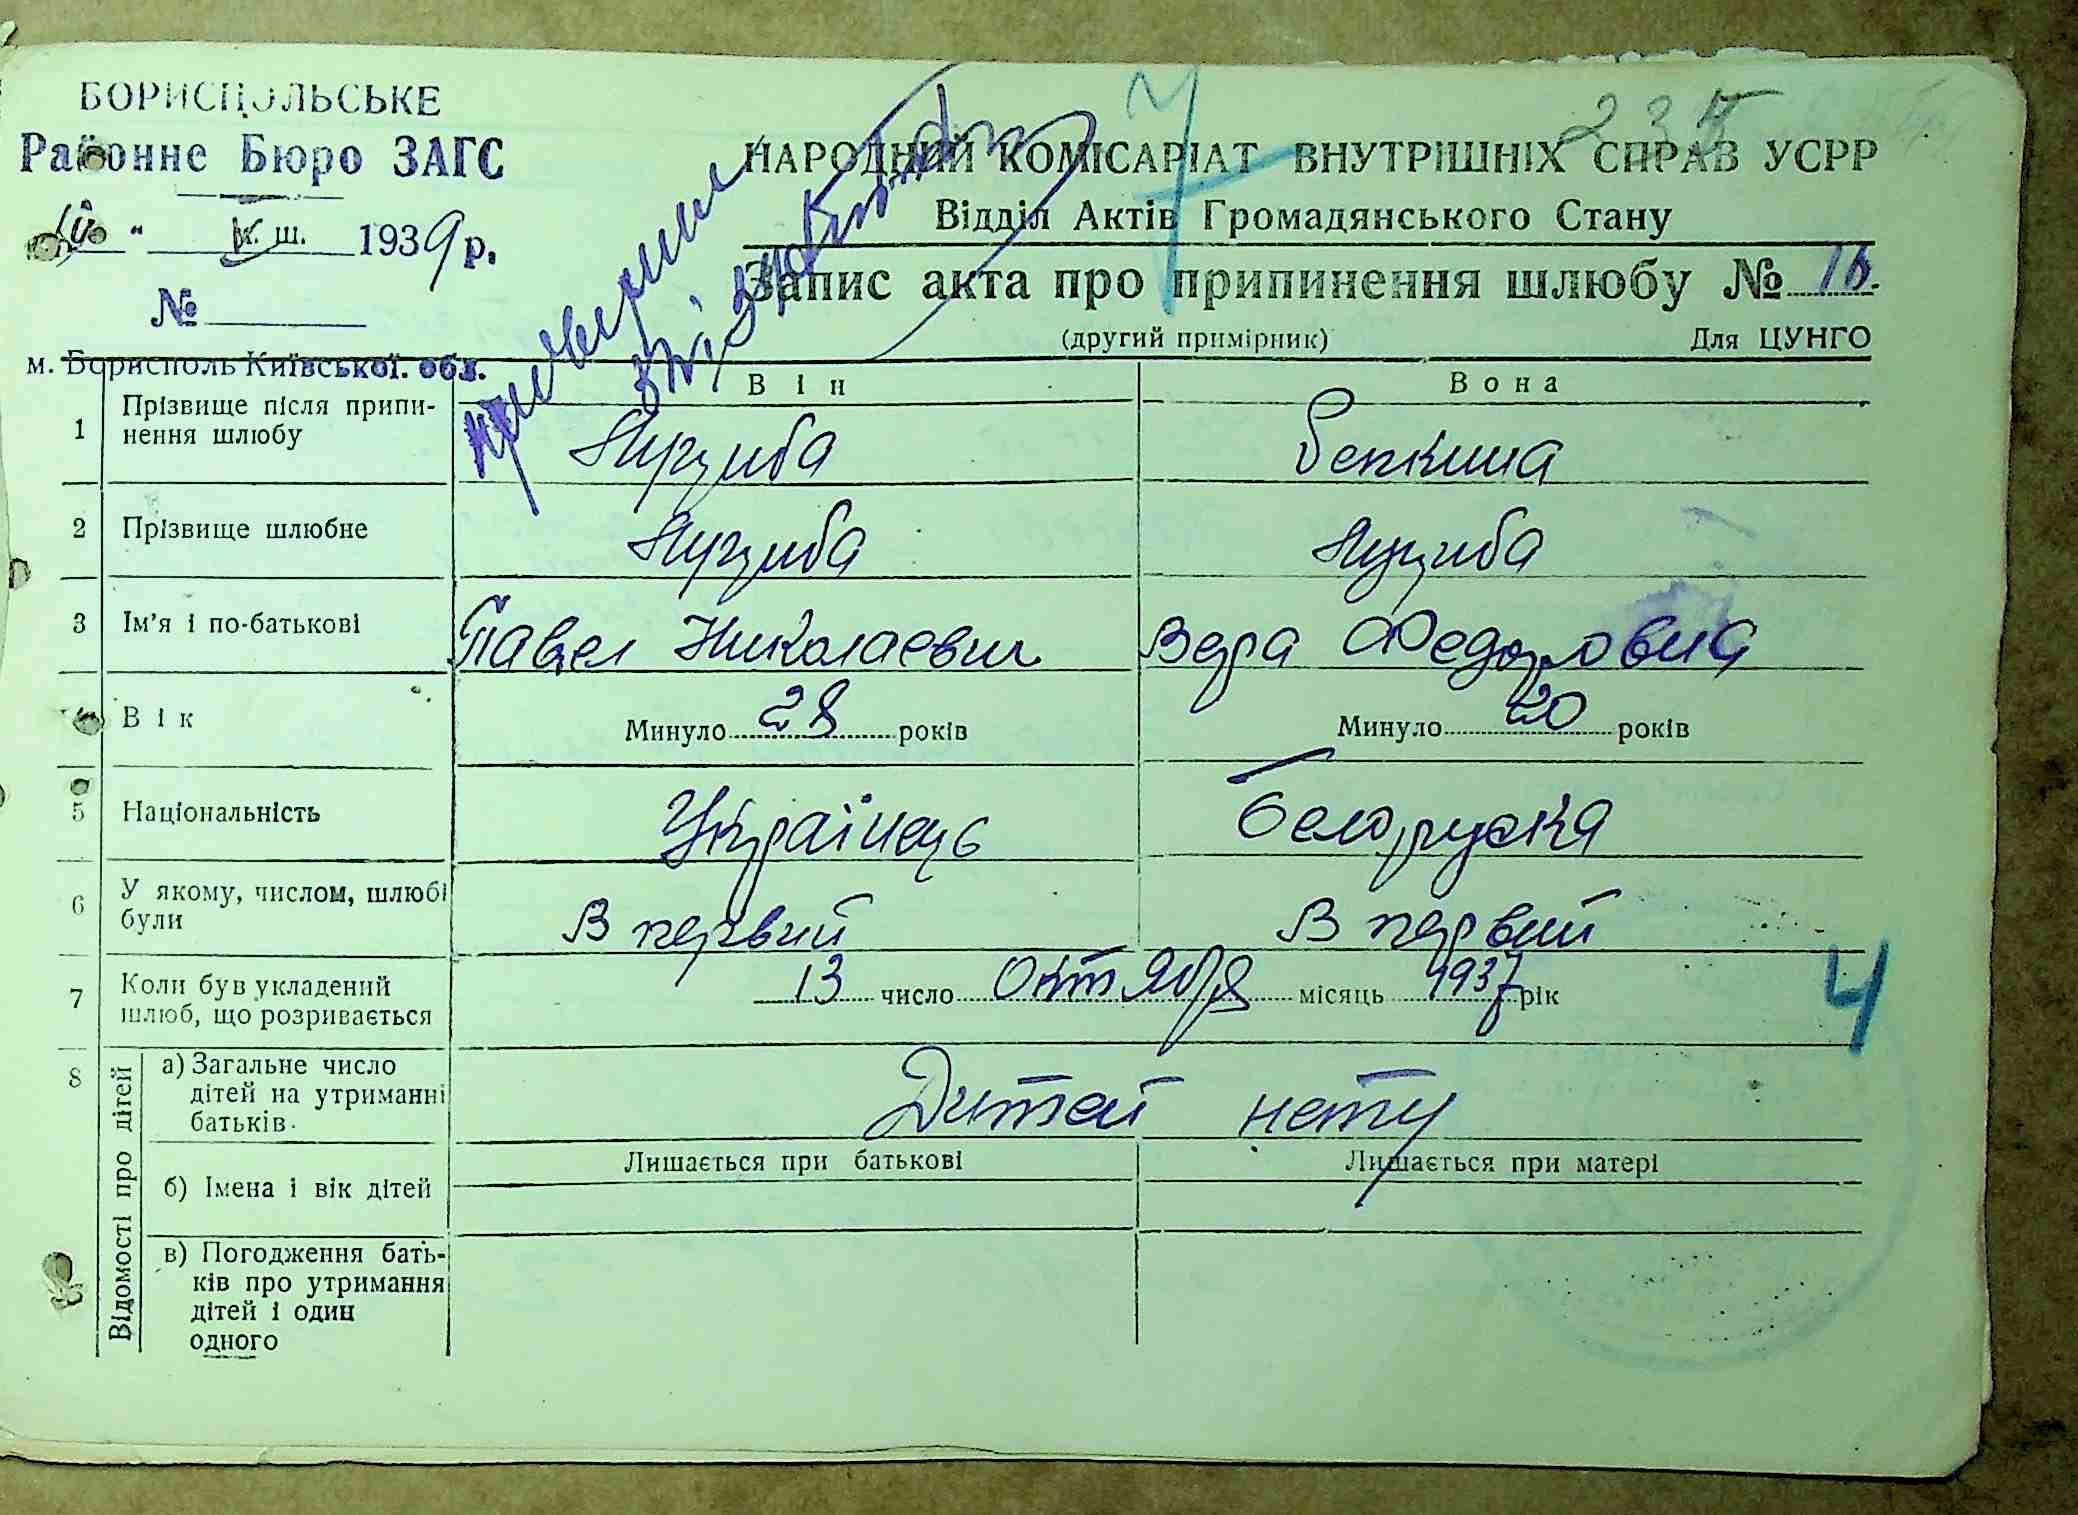 БОРИСПОЛЬСЬКЕ
Районне Бюро ЗАГС
1939 р.
№
м. Борисполь Київської. обл.
234
НАРОДНИЙ КОМІСАРІАТ ВНУТРІШНІХ СПРАВ УСРР
Відділ Актів Громадянського Стану
Запис акта про припинення шлюбу № 16.
(другий примірник) Для ЦУНГО
7
Він Вона
1 Прізвище після припи-
нення шлюбу
2 Прізвище шлюбне
3 Ім'я і по-батькові Павел Николаевич Вера Федоровна
4 Вік Минуло 28 років Минуло 20 років
5 Національність Українець Белоруска
6 У якому, числом, шлюбі
були В первий В первий
7 Коли був укладений
шлюб, що розривається 13 число октября місяць 1937 рік
4
8 Відомості про дітей
а) Загальне число
дітей на утриманні
батьків. Дитей нету
Лишається при батькові Лишається при матері
б) Імена і вік дітей
в) Погодження бать-
ків про утримання
дітей і один
одного